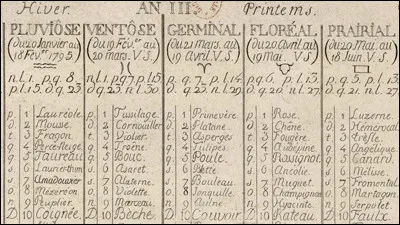 Hiver. AN III Printems.
PLUVIÔSE VENTÔSE GERMINAL FLORÉAL PRAIRIAL
(du 20 Janvier au (du 19 Fév.er au (du 21 mars. au (du 20 Avril au (du 20 Mai. au
18 Fév.er 1795. 20 mars. V.S.) 19 Avril. V.S.) 19 Mai V S) 18 Juin. V.S.)
p 1 Lauréole. p 1 Tussilage. p 1 Primevère. p 1 Rose. p 1 Luzerne.
d 2 Mousse. d 2 Cornouiller d 2 Platane. d 2 Chêne. d 2 Hémérocal.
t 3 Fragon t 3 Violier t 3 Asperges t 3 Fougère. t 3 Trèfle.
q 4 Perce-Neige q 4 Troène. q 4 Tulipe q 4 Aubépine. q 4 Angélique
q 5 Taureau q 5 Bouc. q 5 Poule. q 5 Rossignol. q 5 Canard.
s 6 Laurier-thim s 6 Asaret. s 6 Bette s 6 Ancolie. s 6 Mélisse.
s 7 Amadouvier s 7 Alaterne. s 7 Bouleau s 7 Muguet. s 7 Fromental
o 8 Mézéréon o 8 Violette. o 8 Jonquille o 8 Champignon o 8 Martagon
n 9 Peuplier n 9 Marceau. n 9 Aulne. n 9 Hyacinte n 9 Serpolet.
D 10 Coignée. D 10 Bêche D 10 Couvoir D 10 Rateau D 10 Faulx.